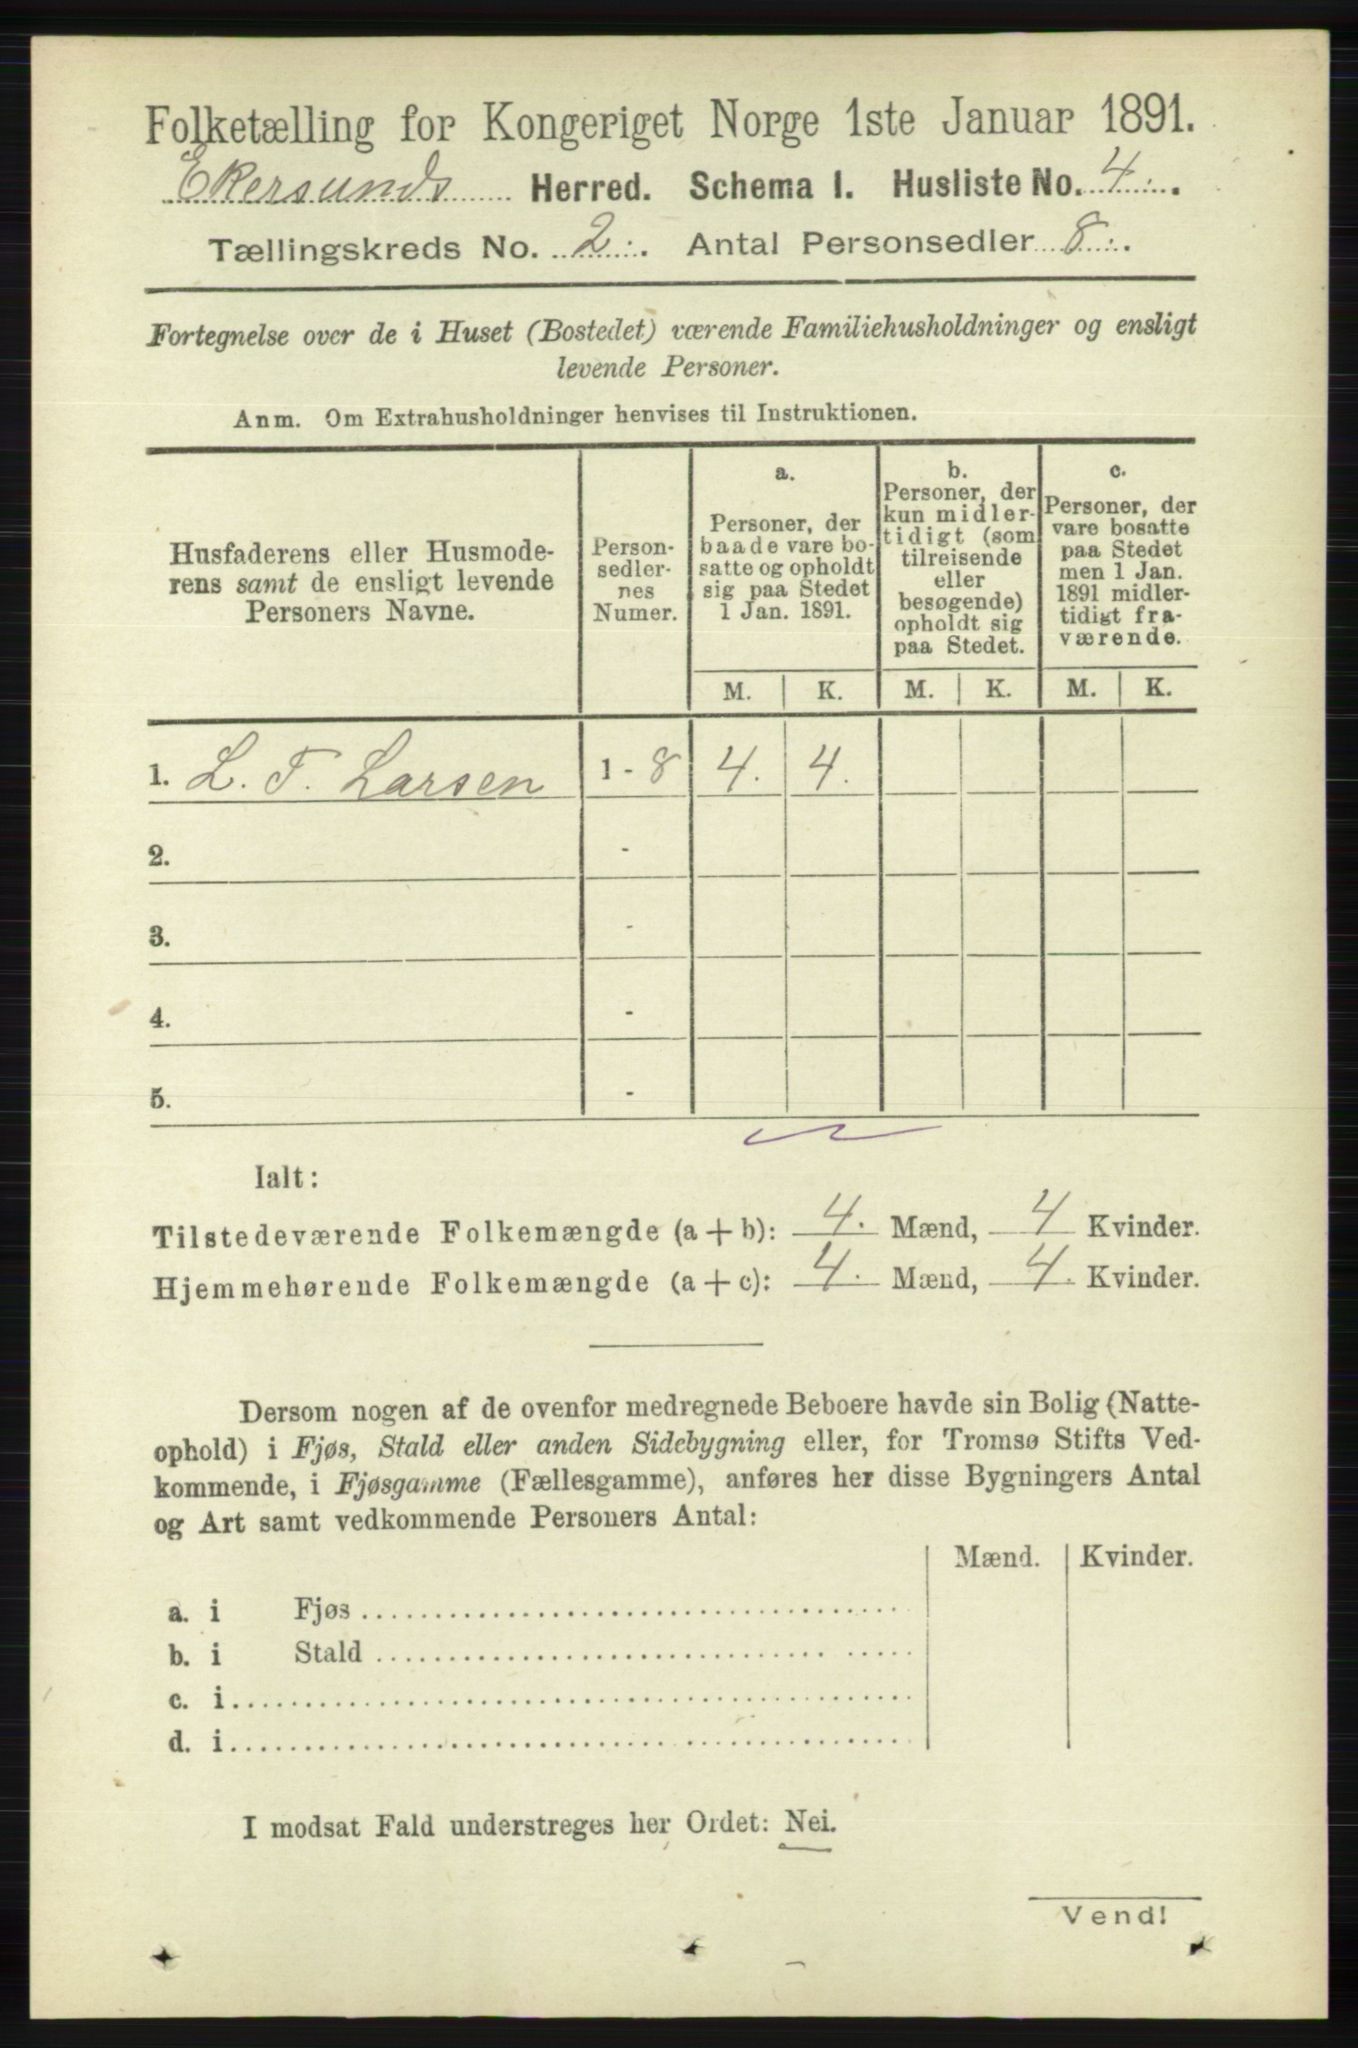 Folketælling for Kongeriget Norge 1ste Januar 1891.
Ekersunds Herred. Schema I. Husliste No. 4.
Tællingskreds No. 2. Antal Personsedler 8.
Fortegnelse over de i Huset (Bostedet) værende Familiehusholdninger og ensligt
levende Personer.
Anm. Om Extrahusholdninger henvises til Instruktionen.
Husfaderens eller Husmode-
rens samt de ensligt levende
Personers Navne.
Person-
sedler-
nes
Numer.
a.
Personer, der
baade vare bo-
satte og opholdt
sig paa Stedet
1 Jan. 1891.
b.
Personer, der
kun midler-
tidigt (som
tilreisende
eller
besøgende)
opholdt sig
paa Stedet.
c.
Personer, der
vare bosatte
paa Stedet
men 1 Jan.
1891 midler-
tidigt fra-
værende.
M. K. M. K. M. K.
1. L. T. Larsen 1 - 8 4. 4.
2. -
3. -
4. -
5. -
Ialt:
Tilstedeværende Folkemængde (a + b): 4. Mænd, 4 Kvinder.
Hjemmehørende Folkemængde (a + c): 4. Mænd, 4. Kvinder.
Dersom nogen af de ovenfor medregnede Beboere havde sin Bolig (Natte-
ophold) i Fjøs, Stald eller anden Sidebygning eller, for Tromsø Stifts Ved-
kommende, i Fjøsgamme (Fællesgamme), anføres her disse Bygningers Antal
og Art samt vedkommende Personers Antal:
Mænd. Kvinder.
a. i Fjøs
b. i Stald
c. i
d. i
I modsat Fald understreges her Ordet: Nei.
Vend!